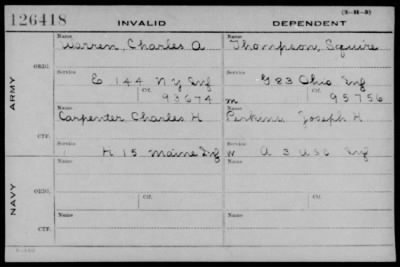 (3-111-3)
126418 INVALID DEPENDENT
Name Name
Warren, Charles A Thompson, Squire
ARMY ORIG. Service Service
E 144 N Y Inf G 83 Ohio Inf
Ctf. Ctf.
93674 m 95756
CTF. Name Name
Carpenter Charles H Perkins Joseph H
Service Service
H 15 Maine Inf W A 3 U S C Inf
NAVY ORIG. Name Name
Service Ctf. Service Ctf.
CTF. Name Name